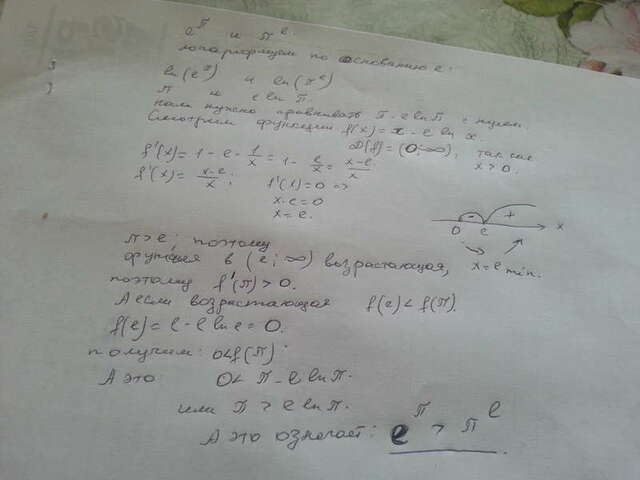 e^π и π^e.
логарифмируем по основанию e:
ln(e^π) и ln(π^e)
π и e ln π.
нам нужно сравнивать π - e ln π с нулем.
Смотрим функцию f(x) = x - e ln x.
D(f) = (0; ∞), так как x > 0.
f'(x) = 1 - e · 1/x = 1 - e/x = (x-e)/x
f'(x) = (x-e)/x; f'(x) = 0 =>
x-e = 0
x = e.
- +
0 e x
x = e min.
π > e; поэтому
функция в (e; ∞) возрастающая,
поэтому f'(π) > 0.
А если возрастающая f(e) < f(π).
f(e) = e - e ln e = 0.
получим: 0 < f(π).
А это 0 < π - e ln π.
или π > e ln π.
А это означает: e^π > π^e.